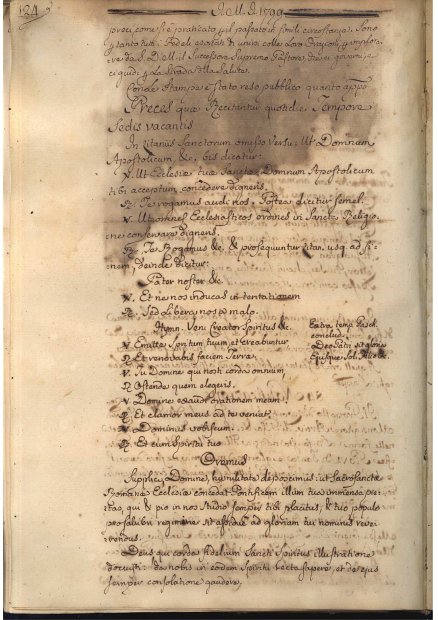 124
A. M. D. 1799
preci, come si è praticato p il passato in simili circostanze. Sono
p tanto tutti i Fedeli esortati di unirsi colle Loro Orazioni, p implora-
re da S. D. M. il Successore Supremo Pastore, che ci governi, e
ci guidi p La strada della Salute.
Con le stampe è stato reso pubblico quanto appo
Preces quæ Recitantur quotidie Tempore
Sedis vacantis
In Litaniis Sanctorum omisso Versu: Ut Domnum
Apostolicum, &c, bis dicatur:
V. Ut Ecclesiæ tuæ Sanctæ Domnum Apostolicum
tibi acceptum concedere digneris.
R. Te rogamus audi nos. Postea dicitur semel.
V. Ut omnes Ecclesiasticos ordines in Sancta Religio-
ne conservare digneris.
R. Te Rogamus &c. & prosequuntur Litan. usq. ad fi-
nem, deinde dicitur:
Pater noster &c.
V. Et ne nos inducas in tentationem
R. Sed Libera nos a malo.
Hymn. Veni Creator Spiritus &c.
Extra temp. Pasch.
conclud.
Deo Patri sit gloria
Ejusque Soli Filio &c.
V. Emitte Spiritum tuum, et creabuntur
R. Et renovabis faciem Terræ.
V. Tu Domine qui nosti corda omnium,
R. Ostende quem elegeris.
V. Domine exaudi orationem meam
R. Et clamor meus ad te veniat.
V. Dominus vobiscum.
R. Et cum Spiritu tuo
Oremus
Supplici, Domine, humilitate deposcimus: ut Sacrosanctæ
Romanæ Ecclesiæ concedat Pontificem illum tua immensa pie-
tas, qui & pio in nos Studio semper tibi placitus, & tuo populo
pro salubri regimine sit assidue ad gloriam tui nominis reve-
rendus.
Deus qui corda fidelium Sancti Spiritus illustratione
docuisti: da nobis in eodem Spiritu recta sapere, et de ejus
semper consolatione gaudere.